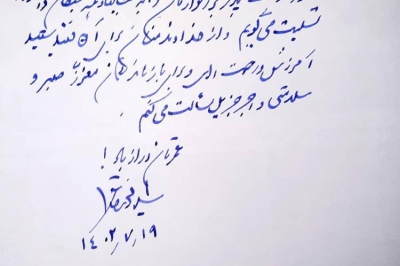 تسلیت می‌گویم و از خداوند منان برای آن فقید سعید
آمرزش و رحمت الهی و برای بازماندگان معزز صبر و
سلامتی و اجر جزیل مسألت می‌کنم.
عمرتان دراز باد!
۱۴۰۲٫۷٫۱۹